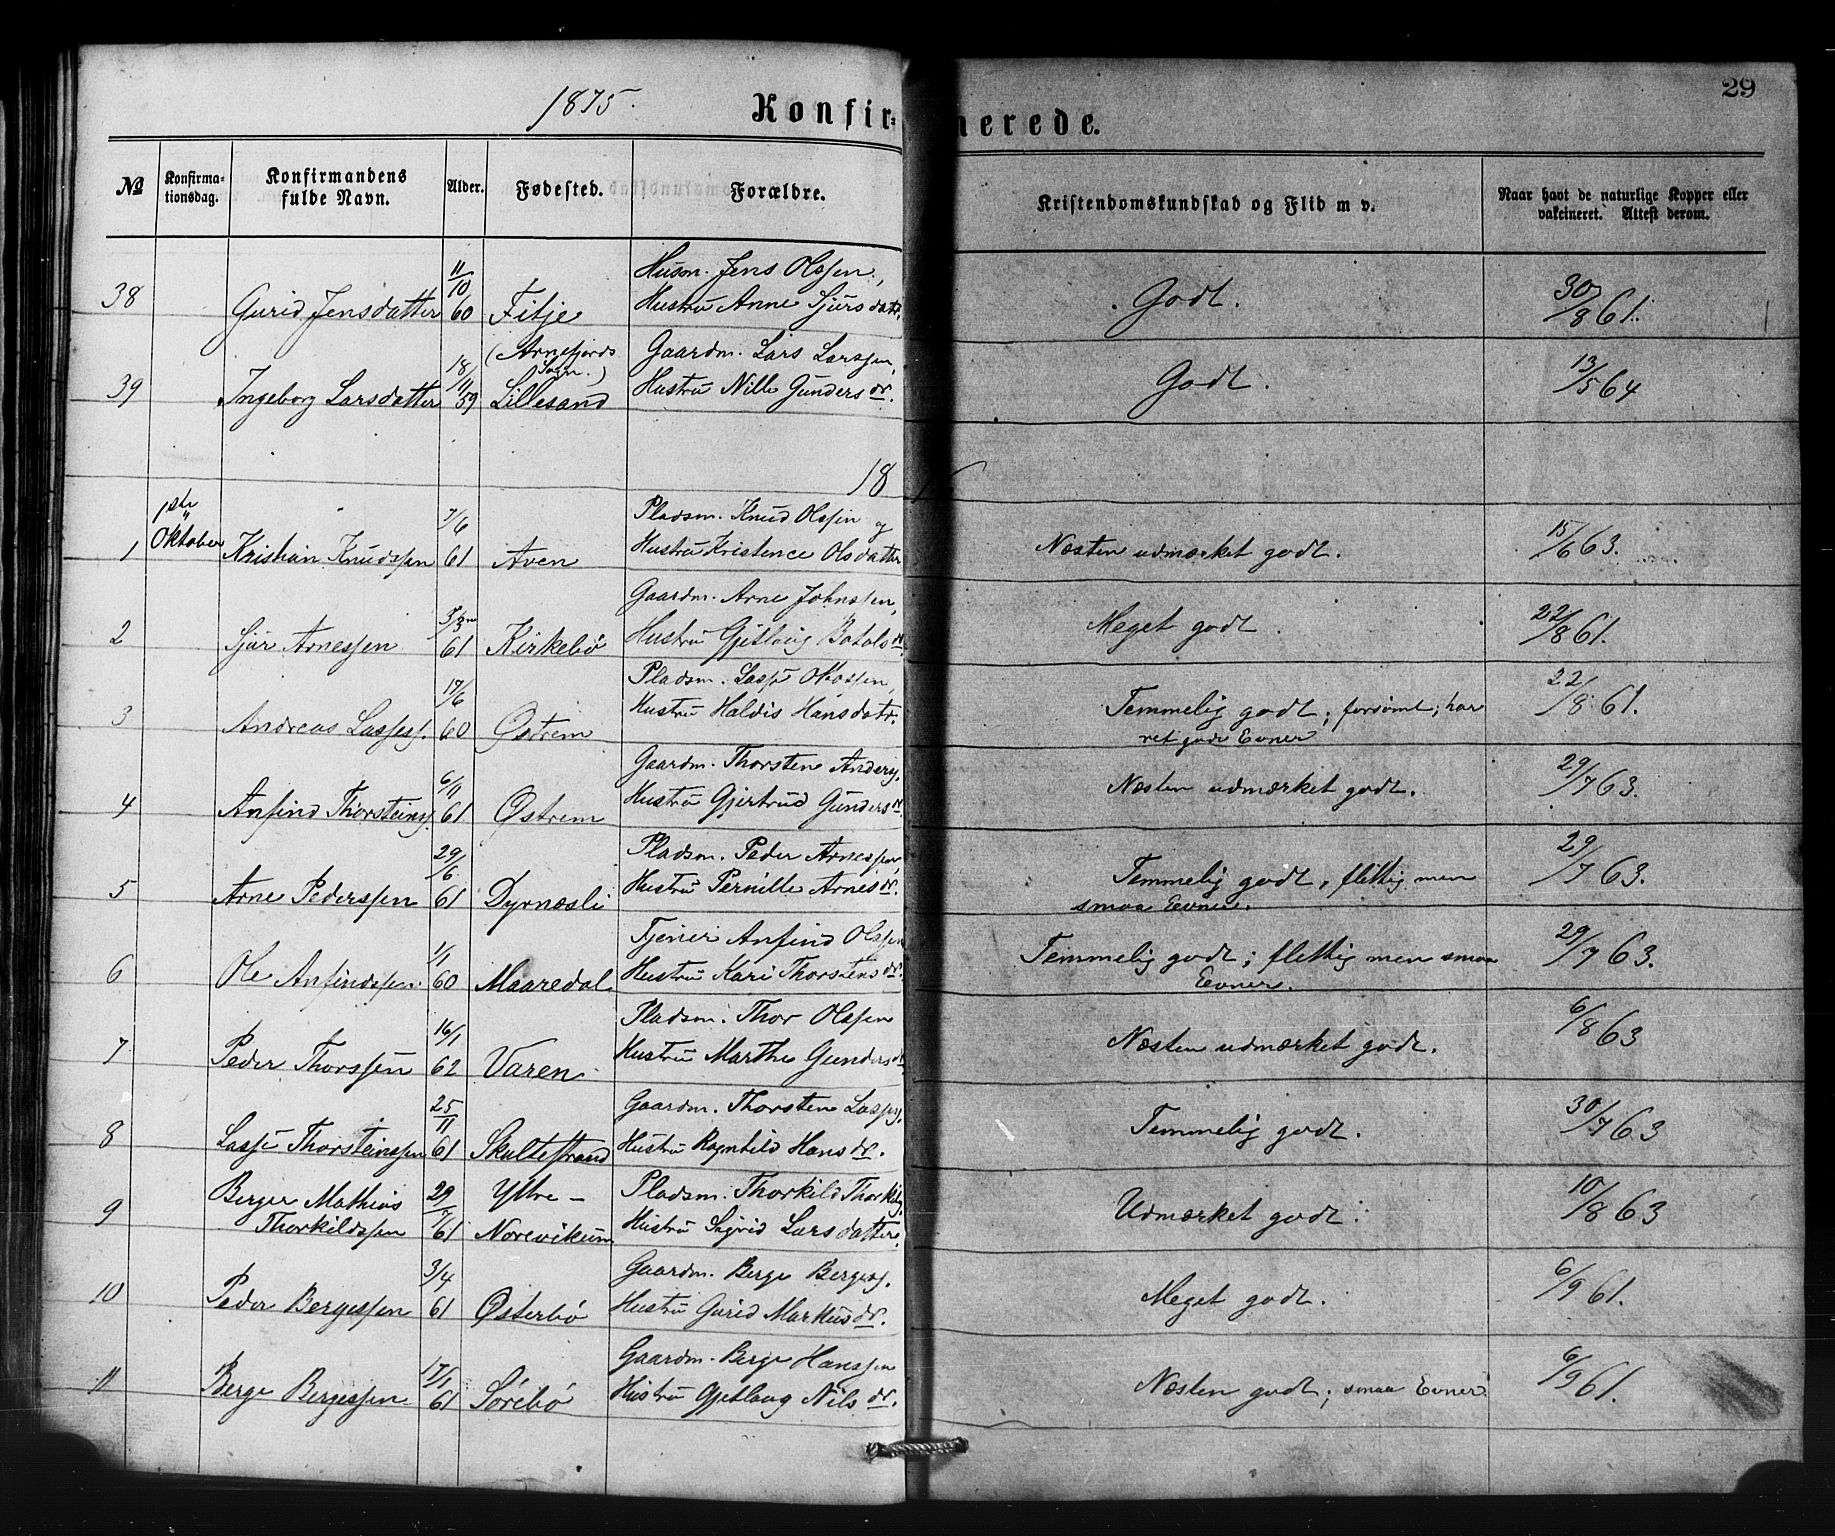 29
1875.
Konfir=
merede.
No
Konfirma-
tionsdag.
Konfirmandens
fulde Navn.
Alder.
Fødested.
Forældre.
Kristendomskundskab og Flid m v.
Naar havt de naturlige Kopper eller
vakcineret. Attest derom.
38 Gurid Jensdatter 11/10 60 Fitje Husm. Jens Olssen, Godt. 30/8 61.
Hustru Anne Sjursdatr.
39 Ingeborg Larsdatter 18/11 59 (Arnefjords Sogn.) Lillesand Gaardm. Lars Larssen, Godt. 13/5 64
Hustru Nille Gunders dr.
18
1 1ste Oktober Kristian Knudssen 7/6 61 Aven Pladsm. Knud Olssen og Næsten udmærket godt. 15/6 63.
Hustru Kristence Olsdatter
2 Sjur Arnessen 61 Kirkebø Gaardm. Arne Johnssen, Meget godt. 22/8 61.
Hustru Gjetlaug Botols dr.
3 Andreas Lasses. 17/6 60 Østrem Pladsm. Lasse Temmelig godt; forsømt; har 22/8 61.
Hustru Haldis Hansdatr. ret gode Evner
4 Anfind Thorsteins. 6/11 61 Østrem Gaardm. Thorsten Anders. Næsten udmærket godt. 29/7 63.
Hustru Gjertrud Gunders dr.
5 Arne Pederssen 29/6 61 Dyrnæsli Pladsm. Peder Arnessen, Temmelig godt, flittig men 29/7 63.
Hustru Pernille Arnes dr. smaa Evner.
6 Ole Anfindssen 1/1 60 Maaredal Tjener Anfind Olssen Temmelig godt; flittig men smaa 29/7 63.
Hustru Kari Thorstens dr. Evner.
7 Peder Thorssen 16/1 62 Varen Pladsm. Thor Olssen Næsten udmærket godt. 6/8 63
Hustru Marthe Gunders dr.
8 Lasse Thorsteinssen 25/11 61 Skultestrand Gaardm. Thorsten Lasses. Temmelig godt. 30/7 63
Hustru Ragnhild Hans dr.
9 Berger Mathias 29/ 61 Yttre - Pladsm. Thorkild Thorkilds. Udmærket godt. 10/8 63
Thorkildssen Norevikum Hustru Sigrid Larsdatter.
10 Peder Bergessen 3/4 61 Østerbø Gaardm. Berge Berges. Meget godt. 6/9 61.
Hustru Gurid Markus dr.
11 Berge Bergessen 17/1 61 Sørebø Gaardm. Berge Hanssen Næsten godt; smaa Evner 6/9 61.
Hustru Gjetlaug Nils dr.